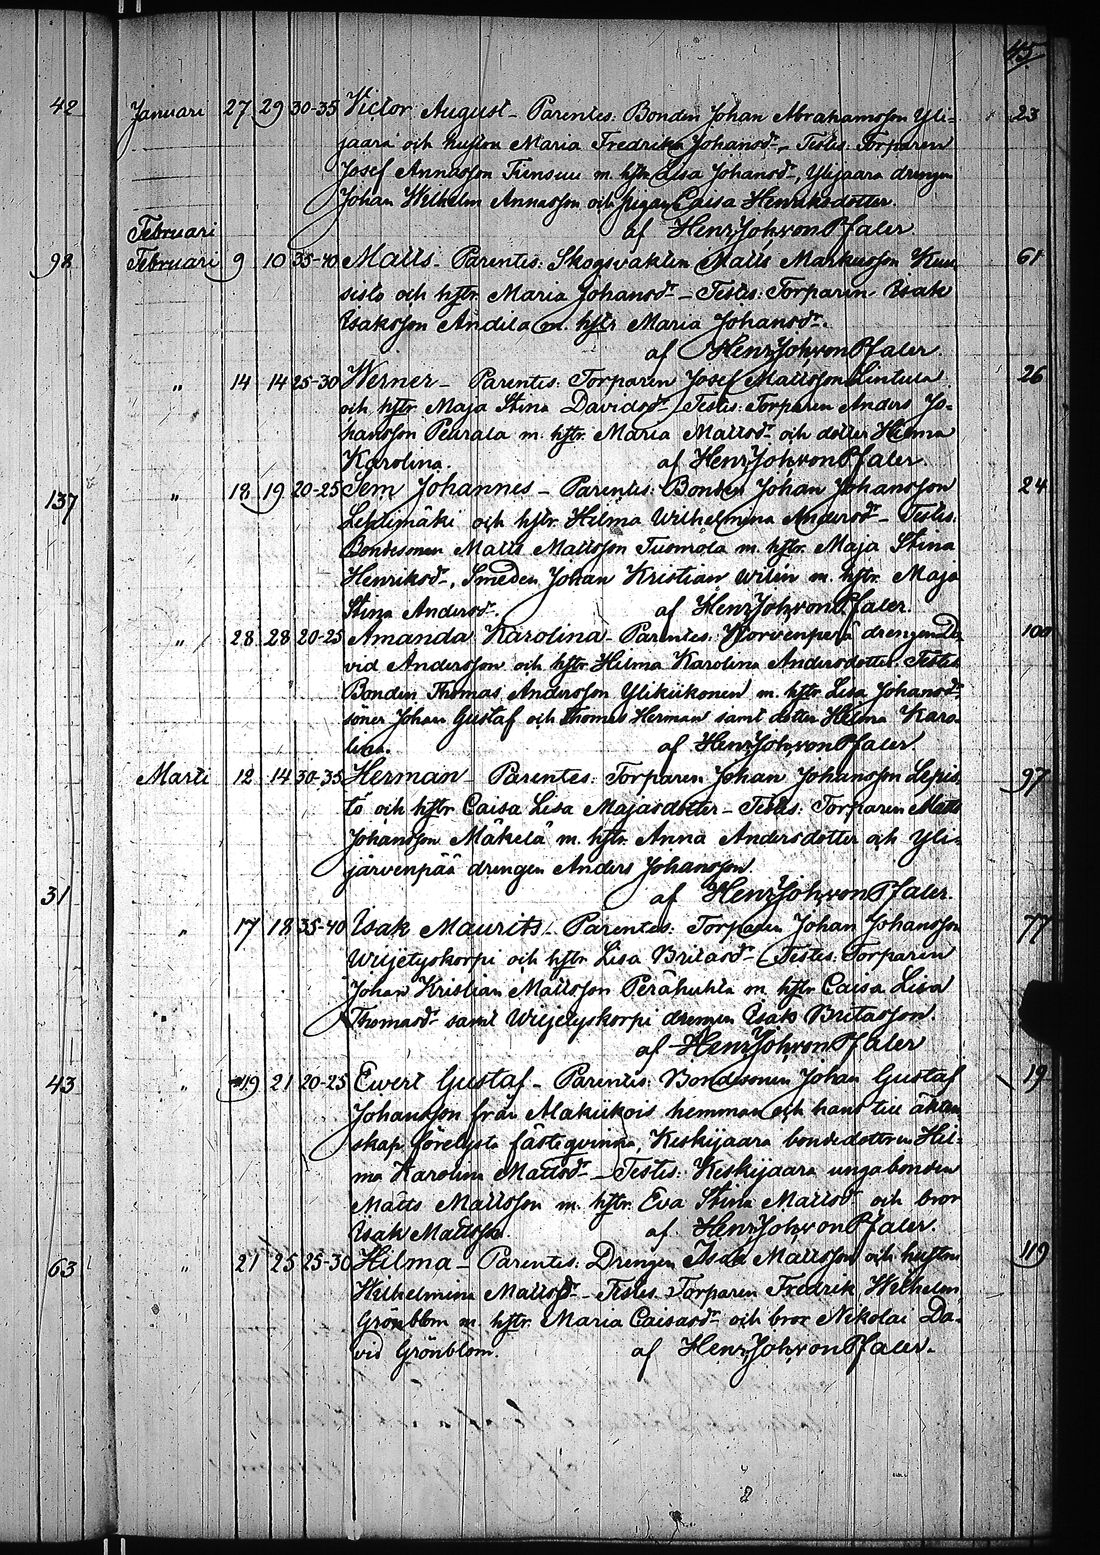 45
42 Januari 27 29 30-35 Victor August - Parentes: Bonden Johan Abrahamsson Yli- 23
jaara och hustru Maria Fredrika Johansdr - Testes: Torparen
Josef Annasson Tiensuu m. hstr Lisa Johansdr, Ylijaara drengen
Johan Wilhelm Annasson och pigan Caisa Henriksdotter.
af Henr Joh von Pfaler
Februari
98 Februari 9 10 35-40 Matts - Parentes: Skogsvakten Matts Markusson Kuu- 61
sisto och hstr Maria Johansdr - Testes: Torparen Isak
Isaksson Andila m. hstr Maria Johansdr.
af Henr Joh von Pfaler.
" 14 14 25-30 Werner - Parentes: Torparen Josef Mattsson Lintula 26
och hstr Maja Stina Davidsdr - Testes: Torparen Anders Jo-
hansson Peurala m. hstr. Maria Mattsdr och dotter Hilma
Karolina. af Henr Joh von Pfaler.
137 " 18 19 20-25 Sem Johannes - Parentes: Bonden Johan Johansson 24
Lehtimäki och hstr. Hilma Wilhelmina Andersdr - Testes:
Bondesonen Matts Mattsson Tuomola m. hstr. Maja Stina
Henriksdr, Smeden Johan Kristian Wilén m. hstr. Maja
Stina Andersdr. af Henr Joh von Pfaler.
" 28 28 20-25 Amanda Karolina - Parentes: Korvenperä drengen Da- 100
vid Andersson och hstr Hilma Karolina Andersdotter. Testes:
Bonden Thomas Andersson Ylikiikonen m. hstr. Lisa Johansdr
söner Johan Gustaf och Thomas Herman samt dotter Hilma Karo-
lina. af Henr Joh von Pfaler.
Marti 12 14 30-35 Herman Parentes: Torparen Johan Johansson Lepis- 97
tö och hstr Caisa Lisa Majasdotter - Testes: Torparen Matts
Johansson Mäkelä m. hstr. Anna Andersdotter och Yli-
järvenpää drengen Anders Johansson.
31 af Henr Joh von Pfaler.
" 17 18 35-40 Isak Maurits - Parentes: Torparen Johan Johansson 77
Wiljetyskorpi och hstr Lisa Britasdr - Testes: Torparen
Johan Kristian Mattsson Perähuhta m. hstr Caisa Lisa
Thomasdr samt Wiljetyskorpi drengen Isak Britasson.
af Henr Joh von Pfaler
43 " 19 21 20-25 Ewert Gustaf - Parentes: Bondesonen Johan Gustaf 19
Johansson från Alakiikois hemman och hans till äkten-
skap förelysta fästeqvinna Keskijaara bondedottren Hil-
ma Karolina Mattsdr - Testes: Keskijaara unga bonden
Matts Mattsson m. hstr. Eva Stina Mattsdr och bror
Isak Mattsson. af Henr Joh von Pfaler.
63 " 21 25 25-30 Hilma - Parentes: Drengen Isak Mattsson och hustru 119
Wilhelmina Mattsdr - Testes: Torparen Fredrik Wilhelm
Grönblom m. hstr. Maria Caisasdr och bror Nikolai Da-
vid Grönblom. af Henr Joh von Pfaler.